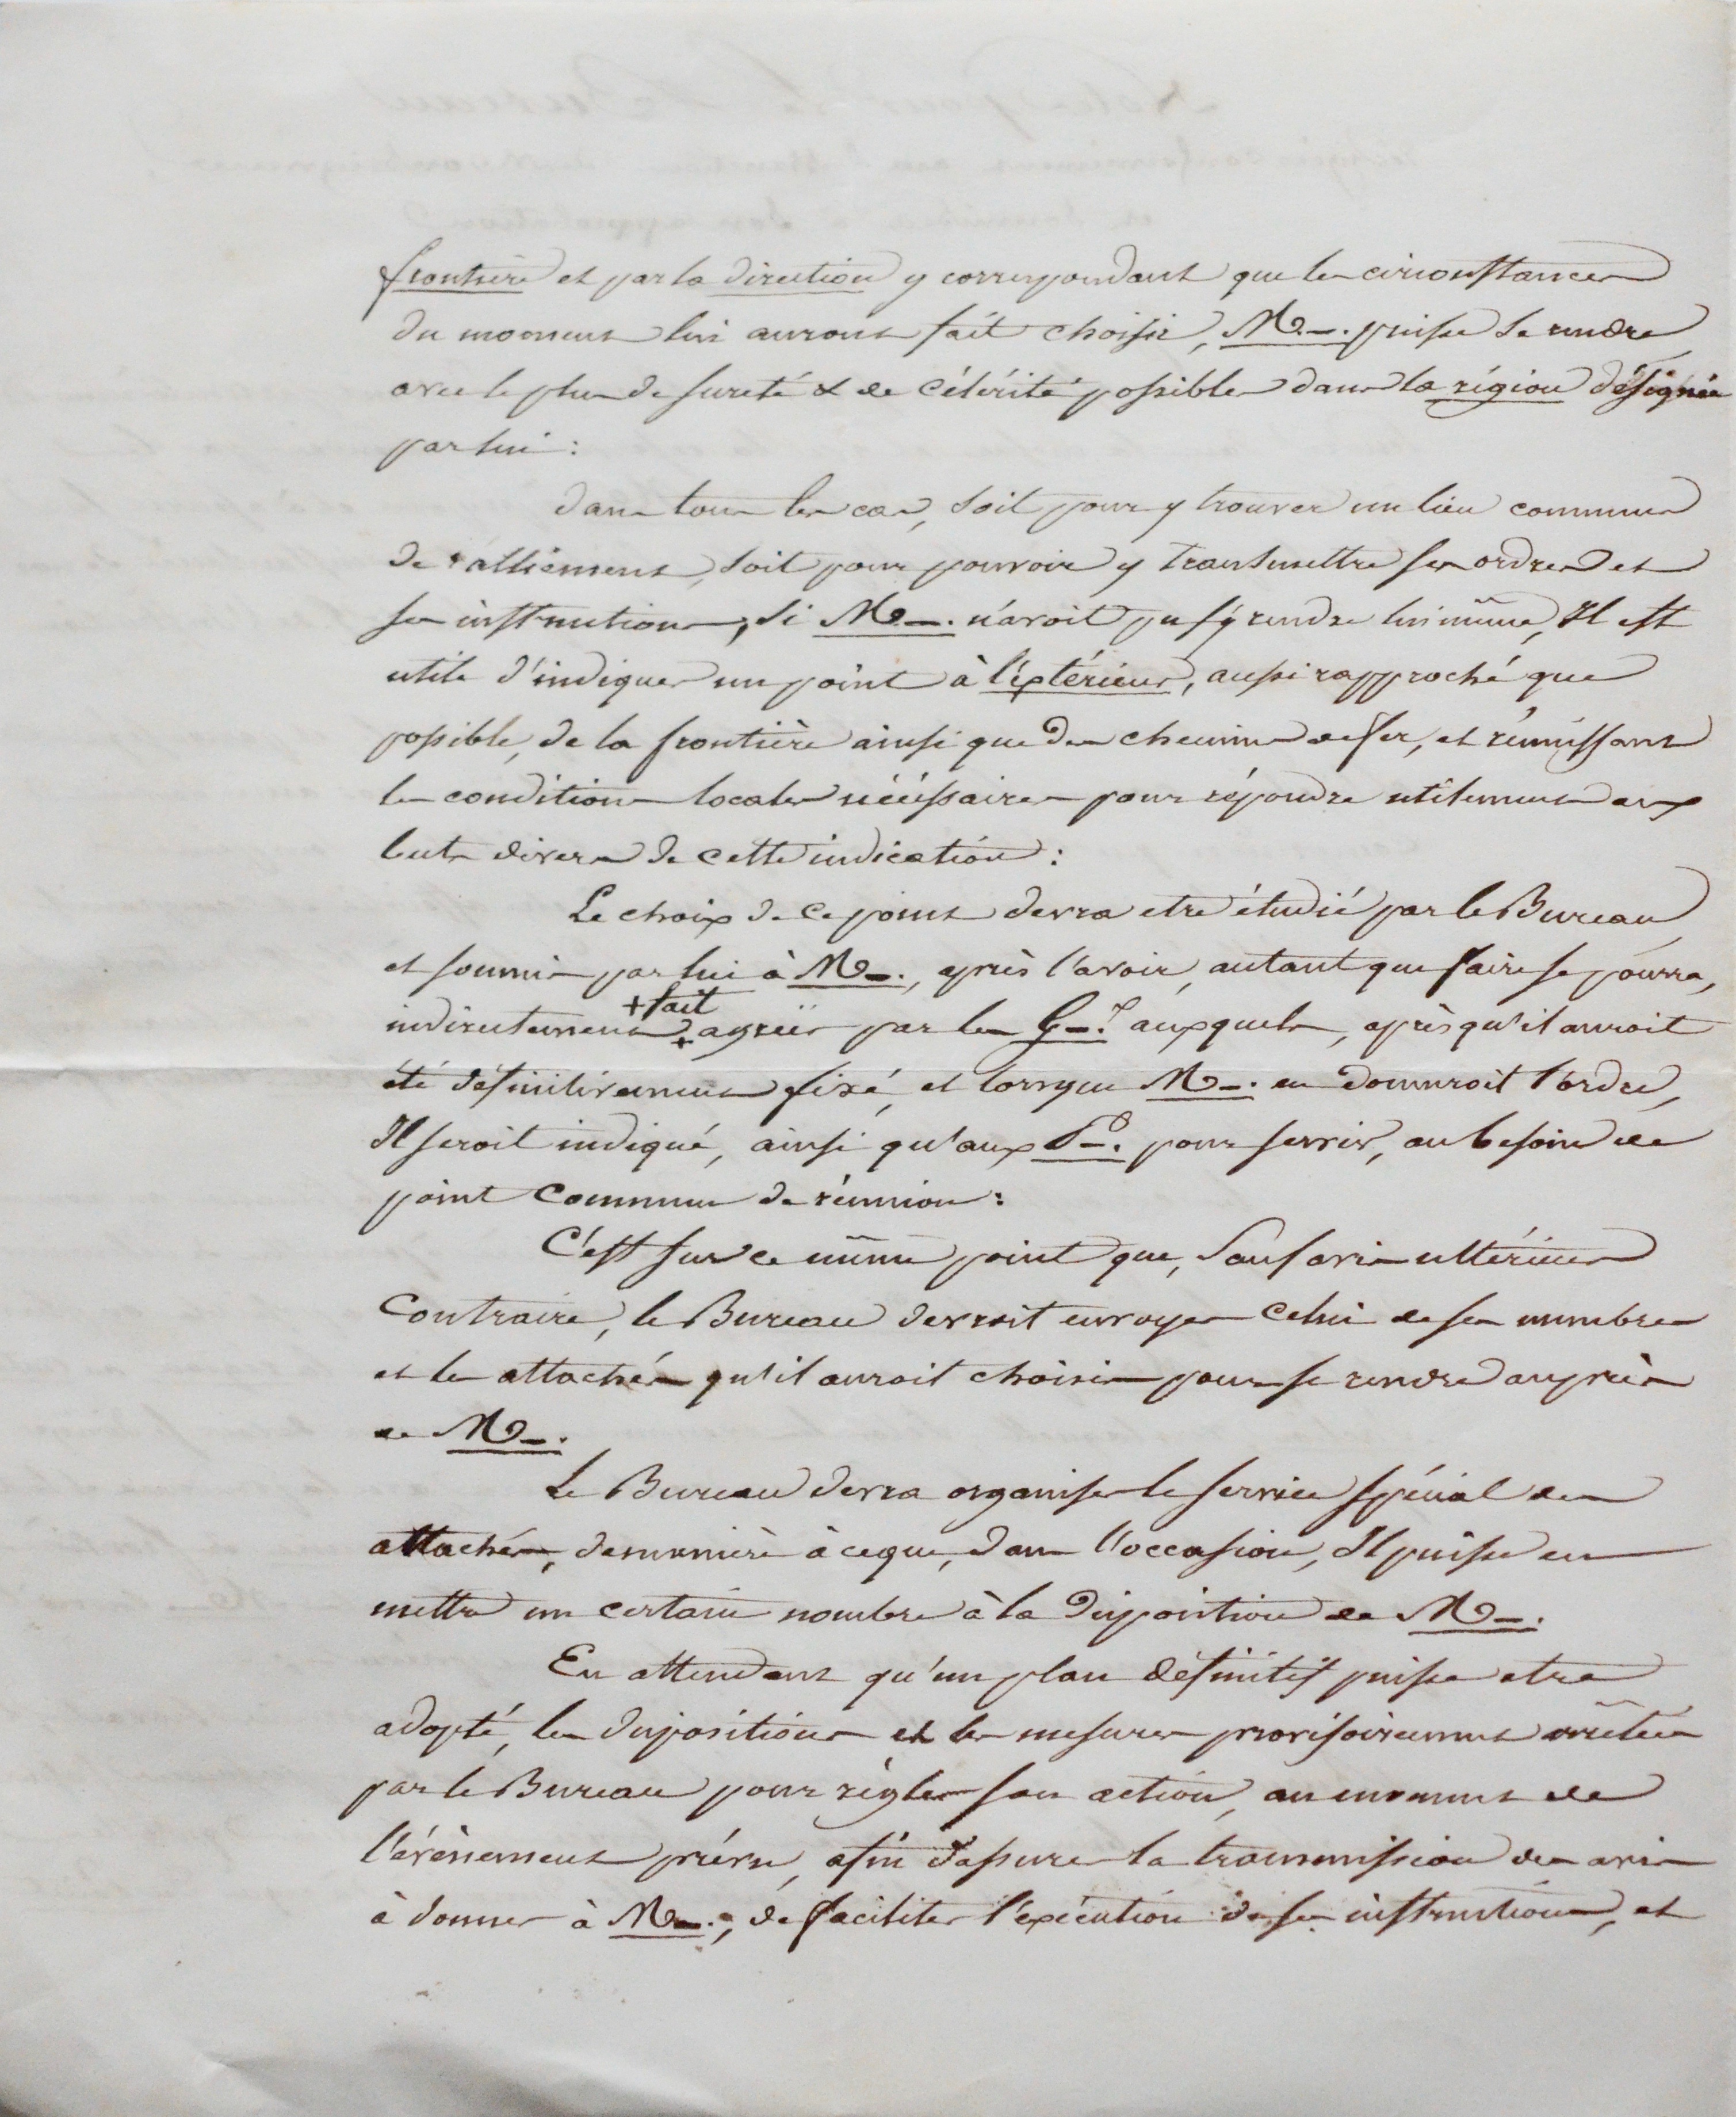 frontière et par la direction y correspondant que les circonstances
du moment lui auront fait choisir, M_. puisse se rendre
avec le plus de sureté & de célérité possibles dans la région désignée
par lui :
dans tous les cas, soit pour y trouver un lieu commun
de ralliement, soit pour pouvoir y transmettre ses ordres et
ses instructions, si M_. n'avoit pu s'y rendre lui même, Il est
utile d'indiquer un point à l'extérieur, aussi rapproché que
possible, de la frontière ainsi que des chemins de fer, et réunissant
les conditions locales nécéssaires pour répondre utilement aux
buts divers de cette indication :
Le choix de ce point devra etre étudié par le Bureau
et soumis par lui à M_., après l'avoir, autant que faire se pourra,
+ fait
indirectement + agréér par les G_. auxquels, après qu'il auroit
été définitivement fixé, et lorsque M_. en donneroit l'ordre,
Il seroit indiqué, ainsi qu'aux P_. pour servir, au besoin de
point commun de réunion :
C'est sur ce même point que, sauf avis ultérieur
Contraire, le Bureau devroit envoyer celui de ses membres
et les attachés qu'il auroit choisis pour se rendre auprès
de M_.
Le Bureau devra organiser le service spécial des
attachés, de manière à ce que, dans l'occasion, Il puisse en
mettre un certain nombre à la disposition de M_.
En attendant qu'un plan définitif puisse etre
adopté, les dispositions et les mesures provisoirement arrêtées
par le Bureau pour régler son action, au moment de
l'évènement prévu, afin d'assurer la transmission des avis
à donner à M_., de faciliter l'exécution de ses instructions, et